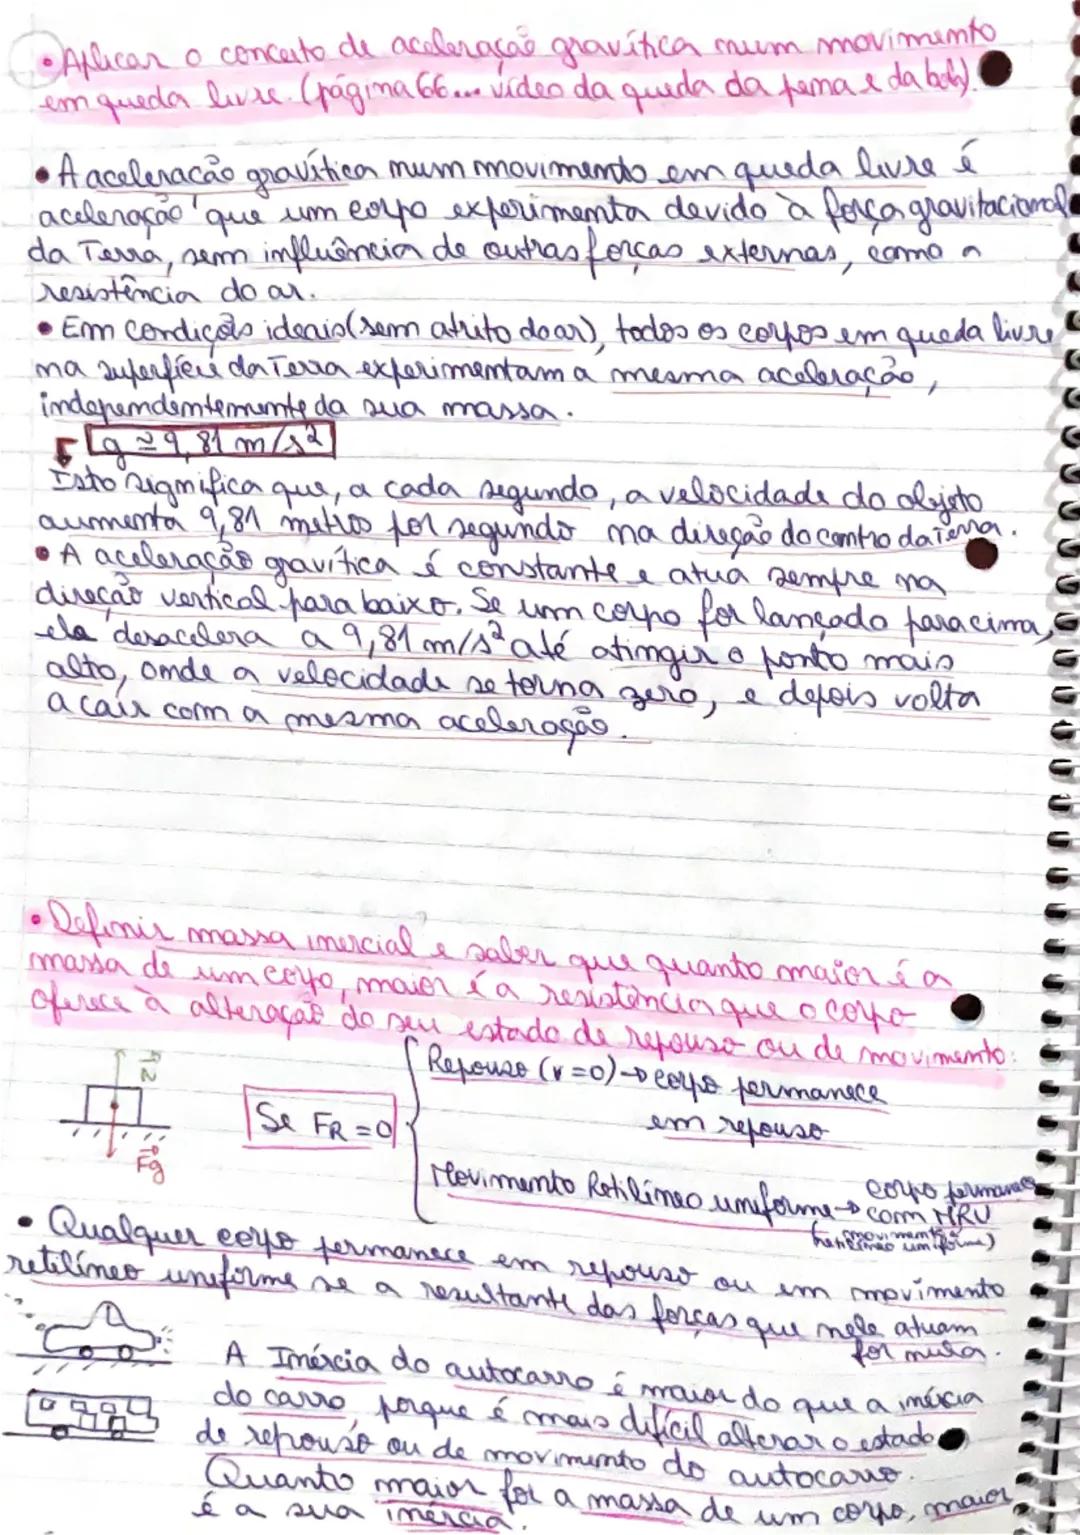 • Aplicar o conceito de aceleração gravítica num movimento
em queda livre. (página 66... vídeo da queda da pena e da bola).
• A aceleracão gravítica num movimento em queda livre é
aceleração que um corpo experimenta devido à força gravitacional
da Terra, sem influência de outras forças externas, como a
resistência do ar.
• Em condições ideais (sem atrito do ar), todos os corpos em queda livre
na superfície da Terra experimentam a mesma aceleração,
independentemente da sua massa.
g ≃ 9,81 m/s²
Isto significa que, a cada segundo, a velocidade do objeto
aumenta 9,81 metros por segundo na direção do centro da Terra.
• A aceleração gravítica é constante e atua sempre na
direção vertical para baixo. Se um corpo for lançado para cima,
ele desacelera a 9,81 m/s² até atingir o ponto mais
alto, onde a velocidade se torna zero, e depois volta
a cair com a mesma aceleração.
• Definir massa inercial e saber que quanto maior é a
massa de um corpo, maior é a resistência que o corpo
oferece à alteração do seu estado de repouso ou de movimento:
N
Fg
Se FR = 0
Repouso (v=0) → corpo permanece
em repouso
Movimento Retilíneo uniforme → corpo permanece
com MRU
(movimento
retilíneo uniforme)
• Qualquer corpo permanece em repouso ou em movimento
retilíneo uniforme se a resultante das forças que nele atuam
for nula.
A Inércia do autocarro é maior do que a inércia
do carro, porque é mais difícil alterar o estado
de repouso ou de movimento do autocarro.
Quanto maior for a massa de um corpo, maior
é a sua inércia.